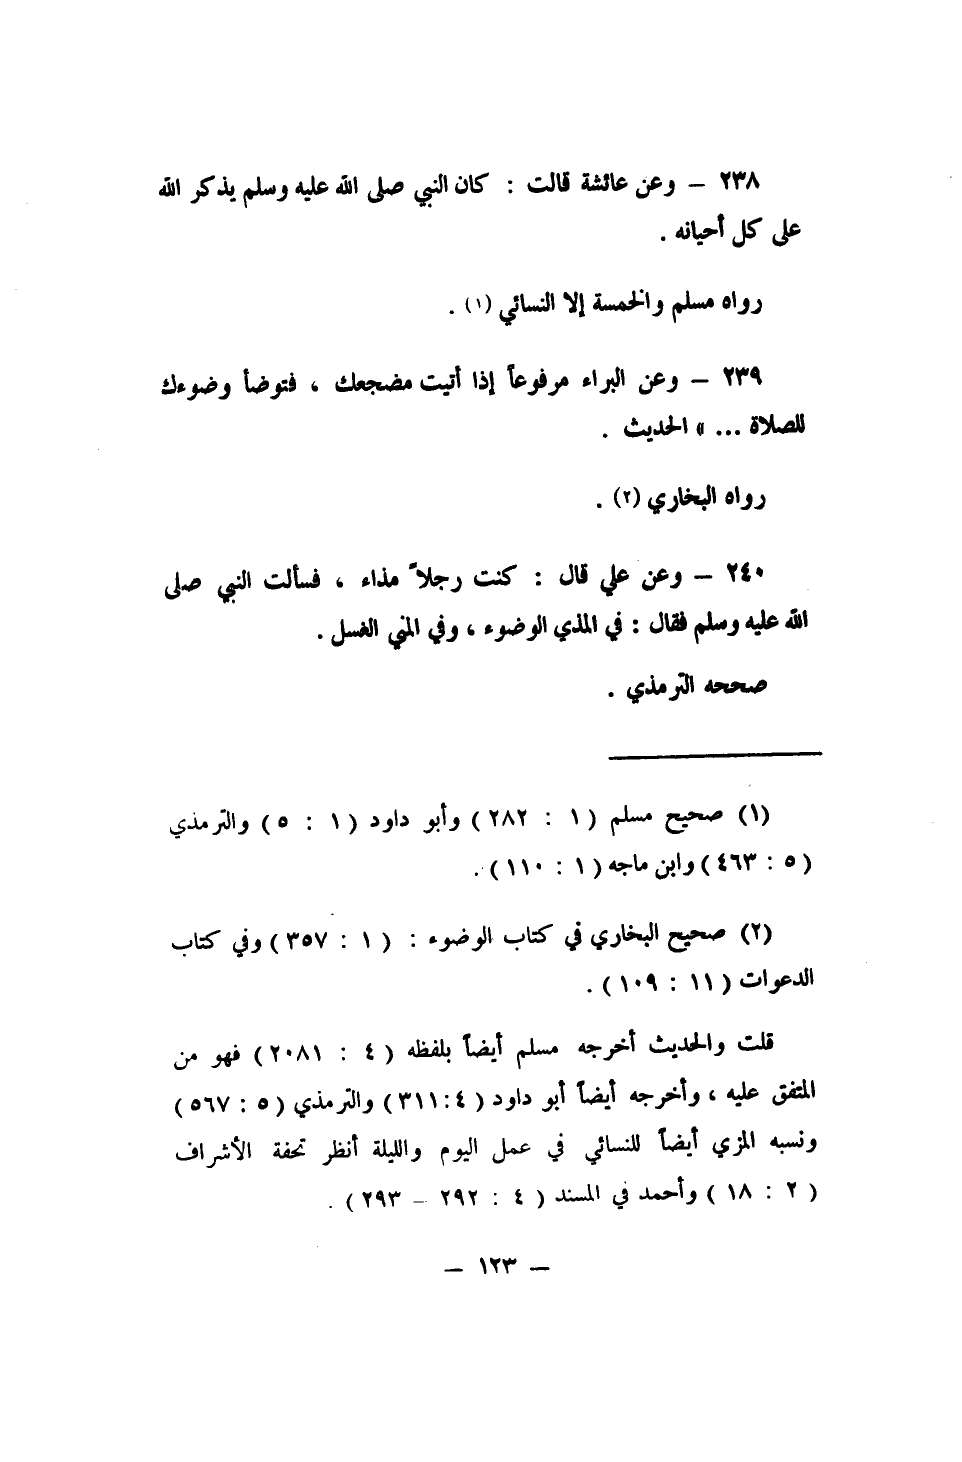 ٢٣٨ – وعن عائشة قالت : كان النبي صلى الله عليه وسلم يذكر الله
على كل أحيانه .
رواه مسلم والخمسة إلا النسائي (١) .
٢٣٩ – وعن البراء مرفوعاً إذا أتيت مضجعك ، فتوضأ وضوءك
للصلاة ... » الحديث .
رواه البخاري (٢) .
٢٤٠ – وعن علي قال : كنت رجلاً مذاء ، فسألت النبي صلى
الله عليه وسلم فقال : في المذي الوضوء ، وفي المني الغسل .
صححه الترمذي .
(١) صحيح مسلم ( ١ : ٢٨٢ ) وأبو داود ( ١ : ٥ ) والترمذي
( ٥ : ٤٦٣ ) وابن ماجه ( ١ : ١١٠ ) .
(٢) صحيح البخاري في كتاب الوضوء : ( ١ : ٣٥٧ ) وفي كتاب
الدعوات ( ١١ : ١٠٩ ) .
قلت والحديث أخرجه مسلم أيضاً بلفظه ( ٤ : ٢٠٨١ ) فهو من
المتفق عليه ، وأخرجه أيضاً أبو داود ( ٤ : ٣١١ ) والترمذي ( ٥ : ٥٦٧ )
ونسبه المزي أيضاً للنسائي في عمل اليوم والليلة أنظر تحفة الأشراف
( ٢ : ١٨ ) وأحمد في المسند ( ٤ : ٢٩٢ – ٢٩٣ ) .
– ١٢٣ –